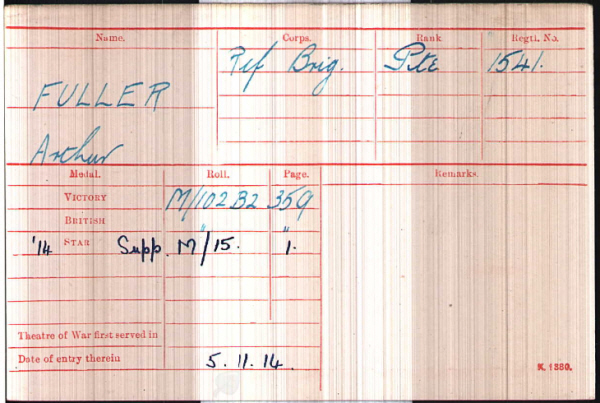 Name. Corps. Rank Regtl. No.
Rif Brig. Pte 1541.
FULLER
Arthur
Medal. Roll. Page. Remarks.
VICTORY M/102 B2 359
BRITISH " "
'14 STAR Supp. M/15. 1.
Theatre of War first served in
Date of entry therein 5. 11. 14.
K. 1380.